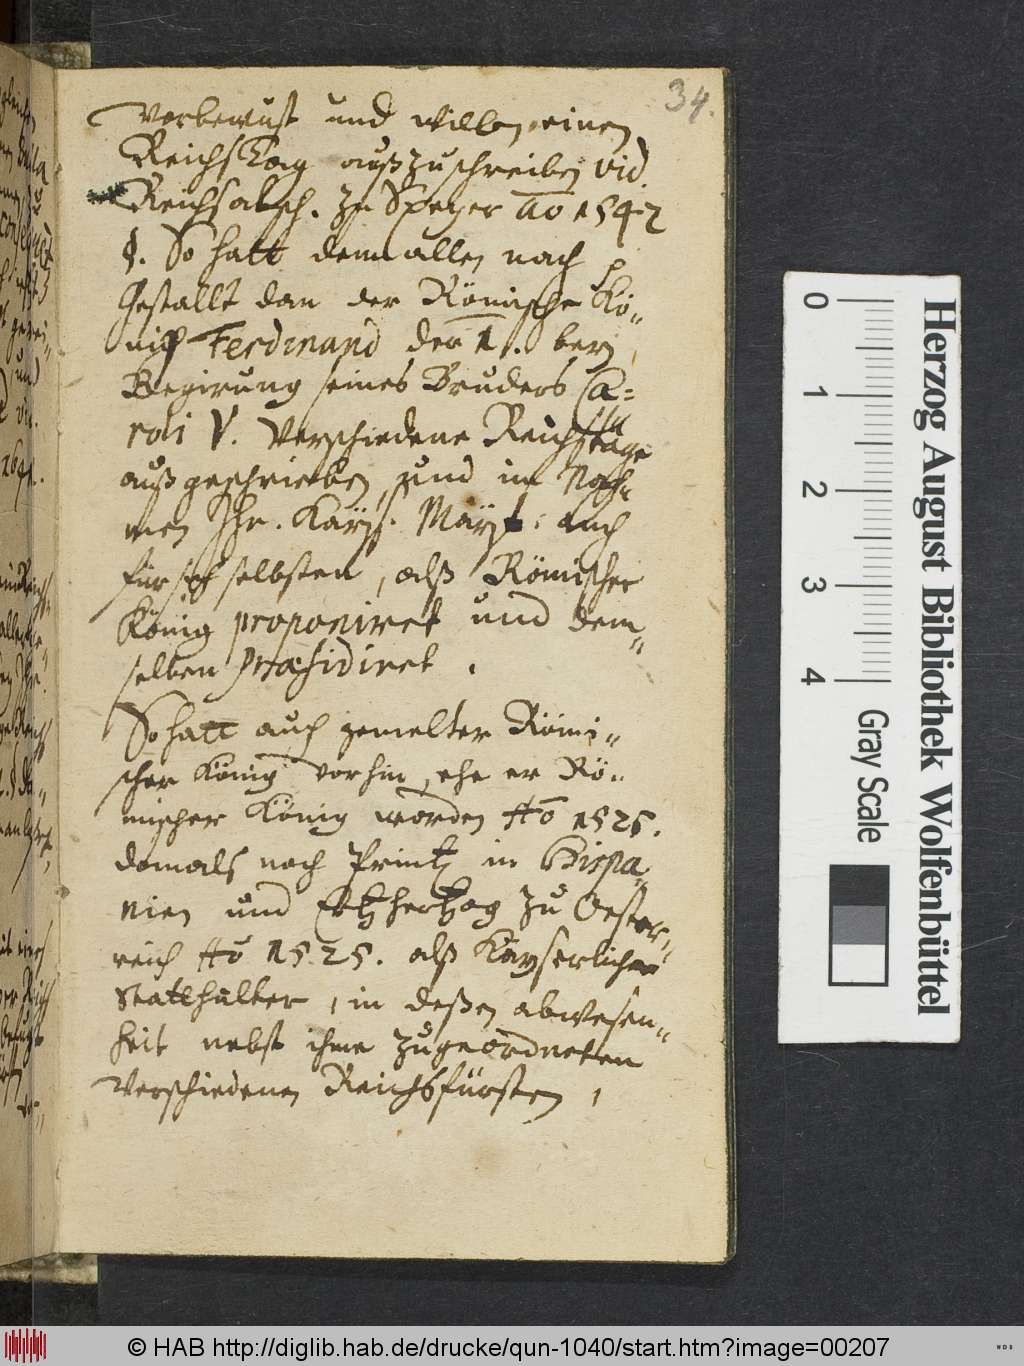 34.
Vorbewust und willen einen
Reichstag außzuschreiben vid.
Reichsabsch. zu Speyer ao 1542
§. So hatt demnallen nach
Gestallt dan der Römische Kö„
nig Ferdinand der 1. bey
Regirung seines Bruders Ca=
roli V. Verschiedene Reichstäge
außgeschrieben, und im Nah„
men Ihr. Kayß. Mayst: auch
für sich selbsten, alß Römischer
König proponiret und dem„
selben præsidiret.
So hatt auch gemelter Römi„
scher König vorhin, ehe er Rö„
mischer König worden Ao 1526.
domals noch Printz in Hispa„
nien und Ertzhertzog zu Oester„
reich Ao 1525. alß Kayserlicher
Statthalter, in deßen abwesen„
heit nebst ihme zugeordneten
Verschiedenen Reichsfürsten,
0 1 2 3 4
Herzog August Bibliothek Wolfenbüttel
Gray Scale
© HAB http://diglib.hab.de/drucke/qun-1040/start.htm?image=00207